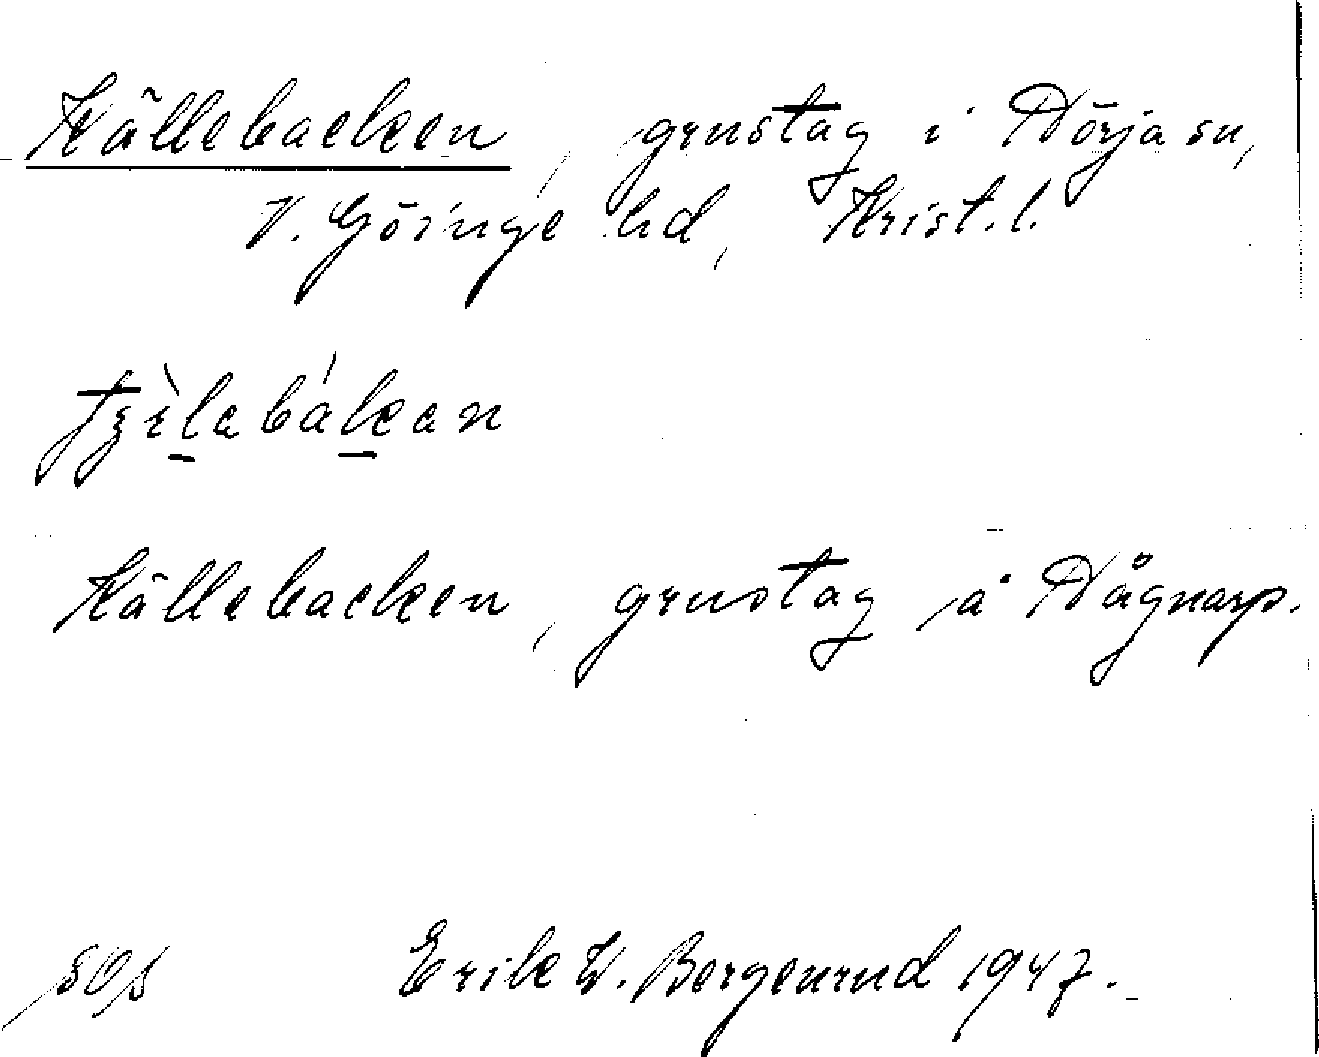 Källebacken, grustag i Hörja sn,
V. Göinge hd, Krist. l.
Källebacken, grustag å Hågnarp.
Erik W. Bergenrud 1947.